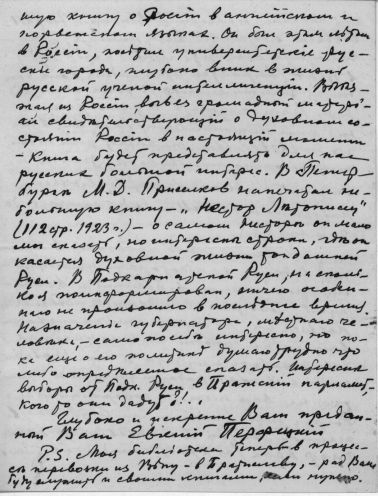 шую книгу о Россіи в английском и
норвежском языках. Он был этим летом
в Россіи, посетил университетскіе рус-
скіе города, глубоко вник в жизнь
русской ученой интеллигенціи. Вывез
из Россіи громадный матеріал
свидетельствующий о духовном со-
стоянии Россіи в настоящий момент
- Книга будет представлять для нас
русских большой интерес. В Петер-
бурге М. Д. Приселков напечатал не-
большую книгу - „Нестор Летописец"
(112 стр. 1923 г.) - о самом Несторе он мало
что сказать, но интересны строки, где он
касается духовной жизни тогдашней
Руси. В Подкарпатской Руси, на сколь-
ко я поинформирован, ничего особен-
наго не произошло в последнее время.
Назначение губернатора, местнаго че-
ловека, - само по себе интересно, но по-
ка еще о его политике думаю трудно что
либо определенное сказать. Интересны
выборы от Подк. Руси в Пражский парламент,
кого то они дадут?!..
Глубоко и искренне Вам предан-
ный Ваш Евгений Перфецкий
P.S. Моя библиотека теперь в процес-
се перевозки из Вены - в Братиславу, - рад Вам
буду служить и своими книгами если нужно.